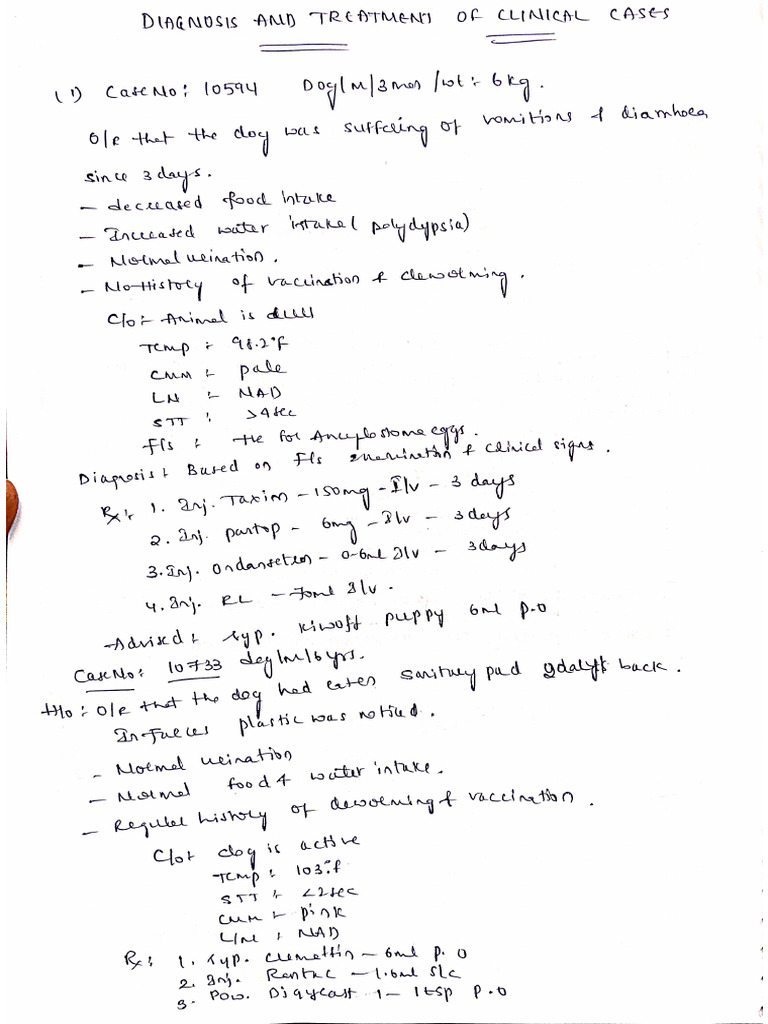 DIAGNOSIS AND TREATMENT OF CLINICAL CASES
(1) Case No: 10594 Dog/M/3mon/wt:- 6kg.
O/R that the dog was suffering of vomitions & diarrhoea
since 3 days.
- decreased food intake
- Increased water intake (polydypsia)
- Normal urination.
- No History of vaccination & deworming.
C/O:- Animal is dull
Temp :- 98.2°F
CMM :- pale
LN :- NAD
STT : >4sec
F/s : +ve for Ancylostoma eggs.
Diagnosis: Based on F/s examination & clinical signs.
Rx:- 1. Inj. Taxim - 150mg - I/v - 3 days
2. Inj. pantop - 6mg - I/v - 3 days
3. Inj. Ondansetron - 0.6ml I/v - 3days
4. Inj. RL - 70ml I/v.
Advised: Syp. Kiwoff puppy 6ml p.o
Case No: 10733 dog/M/6yrs.
H/o: O/R that the dog had eaten sanitary pad 2days back.
In Faeces plastic was noticed.
- Normal urination
- Normal food & water intake.
- Regular history of deworming & vaccination.
C/o:- dog is active
Temp : 103°F
STT :- <2sec
CMM :- pink
L/N : NAD
Rx: 1. Syp. - 6ml p.o
2. Inj. Rantac - 1.6ml S/c
3. Pow. - 1tsp p.o